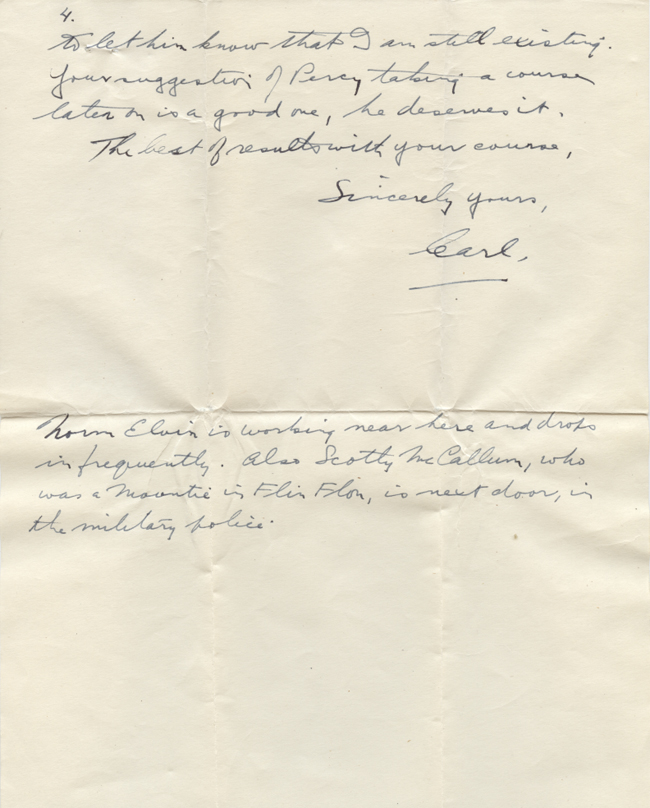 4.
to let him know that I am still existing.
Your suggestion of Percy taking a course
later on is a good one, he deserves it.
The best of results with your course,
Sincerely yours,
Carl.
Norm Elvin is working near here and drops
in frequently. Also Scotty McCallum, who
was a Mountie in Flin Flon, is next door, in
the military police.